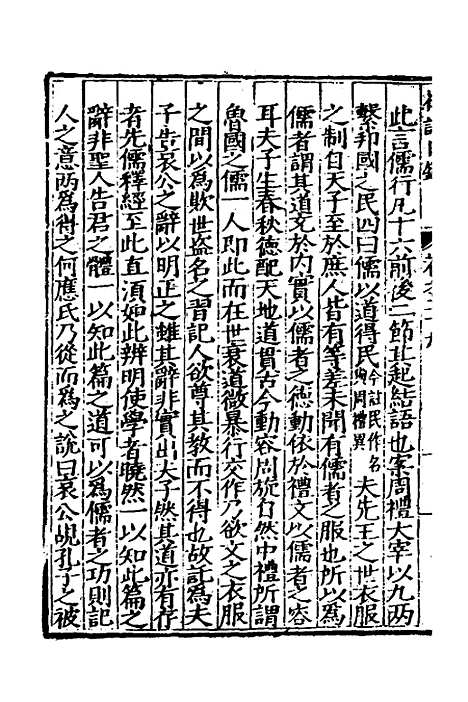 此言儒行凡十六前後二節其起結語也案周禮大宰以九兩
繫邦國之民四曰儒以道得民今註民作名與周禮異夫先王之世衣服
之制自天子至於庶人皆有等差未聞有儒者之服也所以爲
儒者謂其道文於内實以儒者之德動依於禮文以儒者之容
耳夫子生春秋德配天地道貫古今動容周旋自然中禮所謂
魯國之儒一人即此而在世衰道微暴行交作乃欲文之衣服
之間以爲欺世盗名之習記人欲尊其教而不得也故託爲夫
子告哀公之辭以明正之雖其辭非實出夫子然其道亦有存
者先儒釋經至此直湏如此辨明使學者曉然一以知此篇之
辭非聖人告君之體一以知此篇之道可以爲儒者之功則記
人之意两爲得之何應氏乃從而爲之說曰哀公覘孔子之被